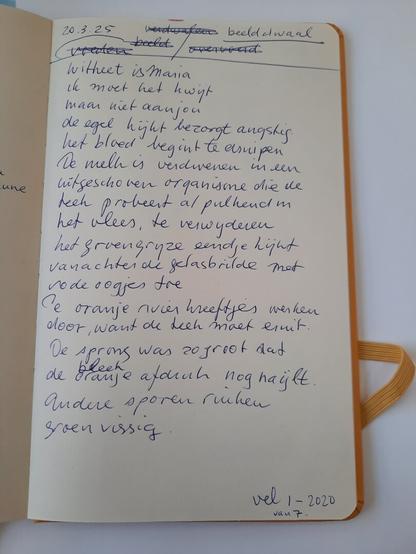 20.3.25 verdwalen beelddwaal
vreten beeld / overvoed
witheet is Maria
ik moet het kwijt
maar niet aan jou
de egel kijkt bezorgt angstig
het bloed begint te druipen
De melk is verdwenen in een
uitgeschoven organisme die de
teek probeert al pulkend in
het vlees, te verwyderen
het groengryze eendje kijkt
van achter de gelasbrilde met
rode oogjes toe
De oranje rivierkreeftjes werken
door, want de teek moet eruit.
De sprong was zo groot dat
bleek
de oranje afdruk nog naylt.
Andere sporen ruiken
groen vissig.
vel 1-2020
van 7.
une